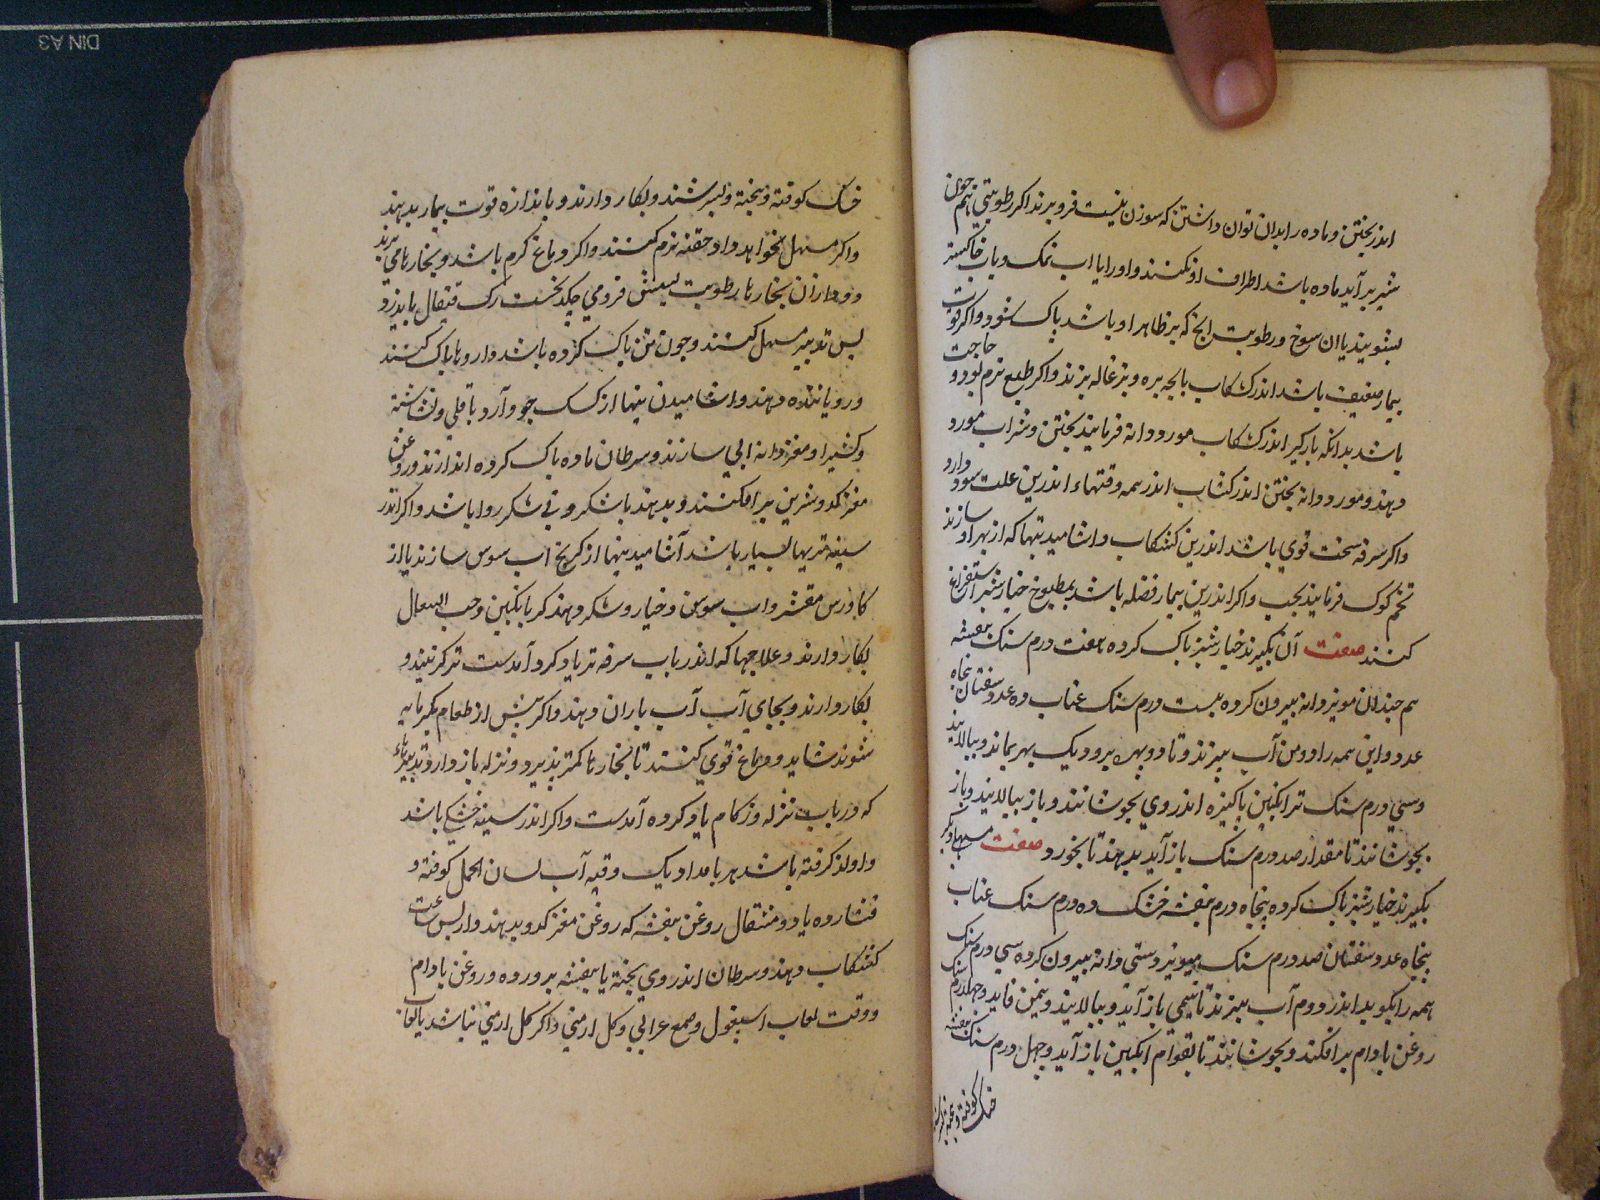 اندر پختن و ماده را بدان توان داشتن که سوزن نیست فرو برند اگر رطوبتی هم چون
شیر برآید ماده باشد اطراف او بکنند و او را با آب نمک و باب خاکستر
بشویند تا آن سوخ و رطوبت لزج که بر ظاهر او باشد پاک شود و اگر قوت
بیمار ضعیف باشد اندر کشکاب پایچه بره و بزغاله پزند و اگر طبع نرم بود و حاجت
باشد بدانکه باز گیر اندر کشکاب مورد دانه فرمایند پختن و شراب مورد
دهند و مورد دانه پختن اندر کشکاب اندر همه وقتهاء اندرین علت سود دارد
و اگر سرفه سخت قوی باشد اندرین کشکاب و اشامیدنیها که از بهر او سازند
تخم کوک فرمایند بجب و اگر اندرین بیمار فضله باشد بمطبوخ خیارشنبر استفراغ
کنند صفت آن بگیرند خیارشنبر پاک کرده هفت درم سنک بنفشه
هم چندان مویز دانه بیرون کرده بیست درم سنک عناب ده عدد سفتان پنجاه
عدد و این همه را دو من آب بپزند تا دو بهر برود یک بهر بماند و بپالایند
و سی درم سنک ترانکبین پاکیزه اندر وی بجوشانند و باز بپالایند و باز
بجوشانند تا مقدار صد درم سنک باز آید بدهند تا بخورد صفت مسهل دیگر
بگیرند خیارشنبر پاک کرده پنجاه درم بنفشه خشک ده درم سنک عناب
پنجاه عدد سفتان صد درم سنک میویز دشتی دانه بیرون کرده سی درم سنک
همه را بکوبد اندر دو من آب بپزند تا بنیمی باز آید و بپالایند و نیمن فانید و چهل درم سنک
روغن بادام برافکند و بجوشانند تا بقوام انکبین باز آید و چهل درم سنک بنفشه
خشک کوفته و
خشک کوفته و بیخته و بسرشند و بکار دارند و باندازه قوت بیمار بدهند
و اگر مسهل نخواهد داد حقنه نرم کنند و اگر دماغ گرم باشد و بخارها می برند
و دماغ از آن بخارها رطوبت بسینش فرو می چکد نخست رک قیفال باید زد
پس تدبیر مسهل کنند و چون تن پاک کرده باشد داروها پاک کنند
و رویاننده دهند و اشامیدنیها از کسک جو و آرد باقلی و نشاسته
و کتیرا و مغز دانه ابی سازند و سرطان ماده پاک کرده اندازند و روغن
مغز کدو شرین برافکنند و بدهند با شکر و بی شکر روا باشد و اگر اندر
سینه تریها بسیار باشد آشامیدنیها از کرنج آب سوس سازند یا از
کاورس مقشر و اب سوس و خیار و شکر دهند کر با نکبین و حب السعال
بکار دارند و علاجها که اندر باب سرفه تر یاد کرد آمدست
بکار دارند و بجای آب آب باران دهند و اگر پیش از طعام بکرمابه
شوند شاید و دماغ قوی کنند تا بخارها کمتر پذیرد و نزله باز دارد تدبیرهاء
که در باب نزله و زکام یاد کرده آمدست و اگر اندر سینه خشکی باشد
و آواز کرفته باشد هر بامداد یک وقیه آب لسان الحمل کوفته و
فشارده با دو مثقال روغن بنفشه که روغن مغز کدو بدهند و از پس ساعت
کشکاب دهند و سرطان اندر وی پخته با بنفشه پرورده و روغن بادام
و وقت لعاب اسبغول و صمغ عرابی و کل ارمنی و اگر کل ارمنی نباشد با لعاب